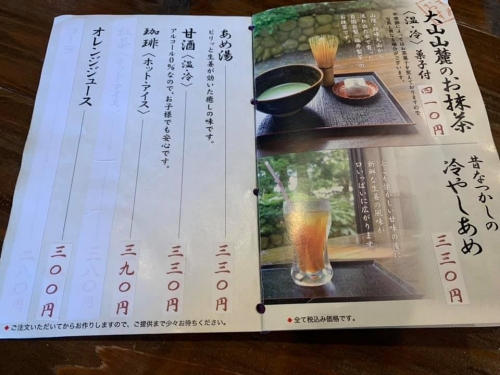 大山山麓のお抹茶
〈温・冷〉菓子付 四一〇円
昔なつかしの
冷やしあめ
三三〇円
どこか懐かしい甘味の後に
新鮮な生姜の風味が
口いっぱいに広がります。
◆全て税込み価格です。
あめ湯 三三〇円
ピリッと生姜が効いた癒しの味です。
甘酒〈温・冷〉 三三〇円
アルコール0%なので、お子様でも安心です。
珈琲〈ホット・アイス〉 三九〇円
オレンジジュース 三〇〇円
◆ご注文いただいてからお作りしますので、ご提供まで少々お待ちください。